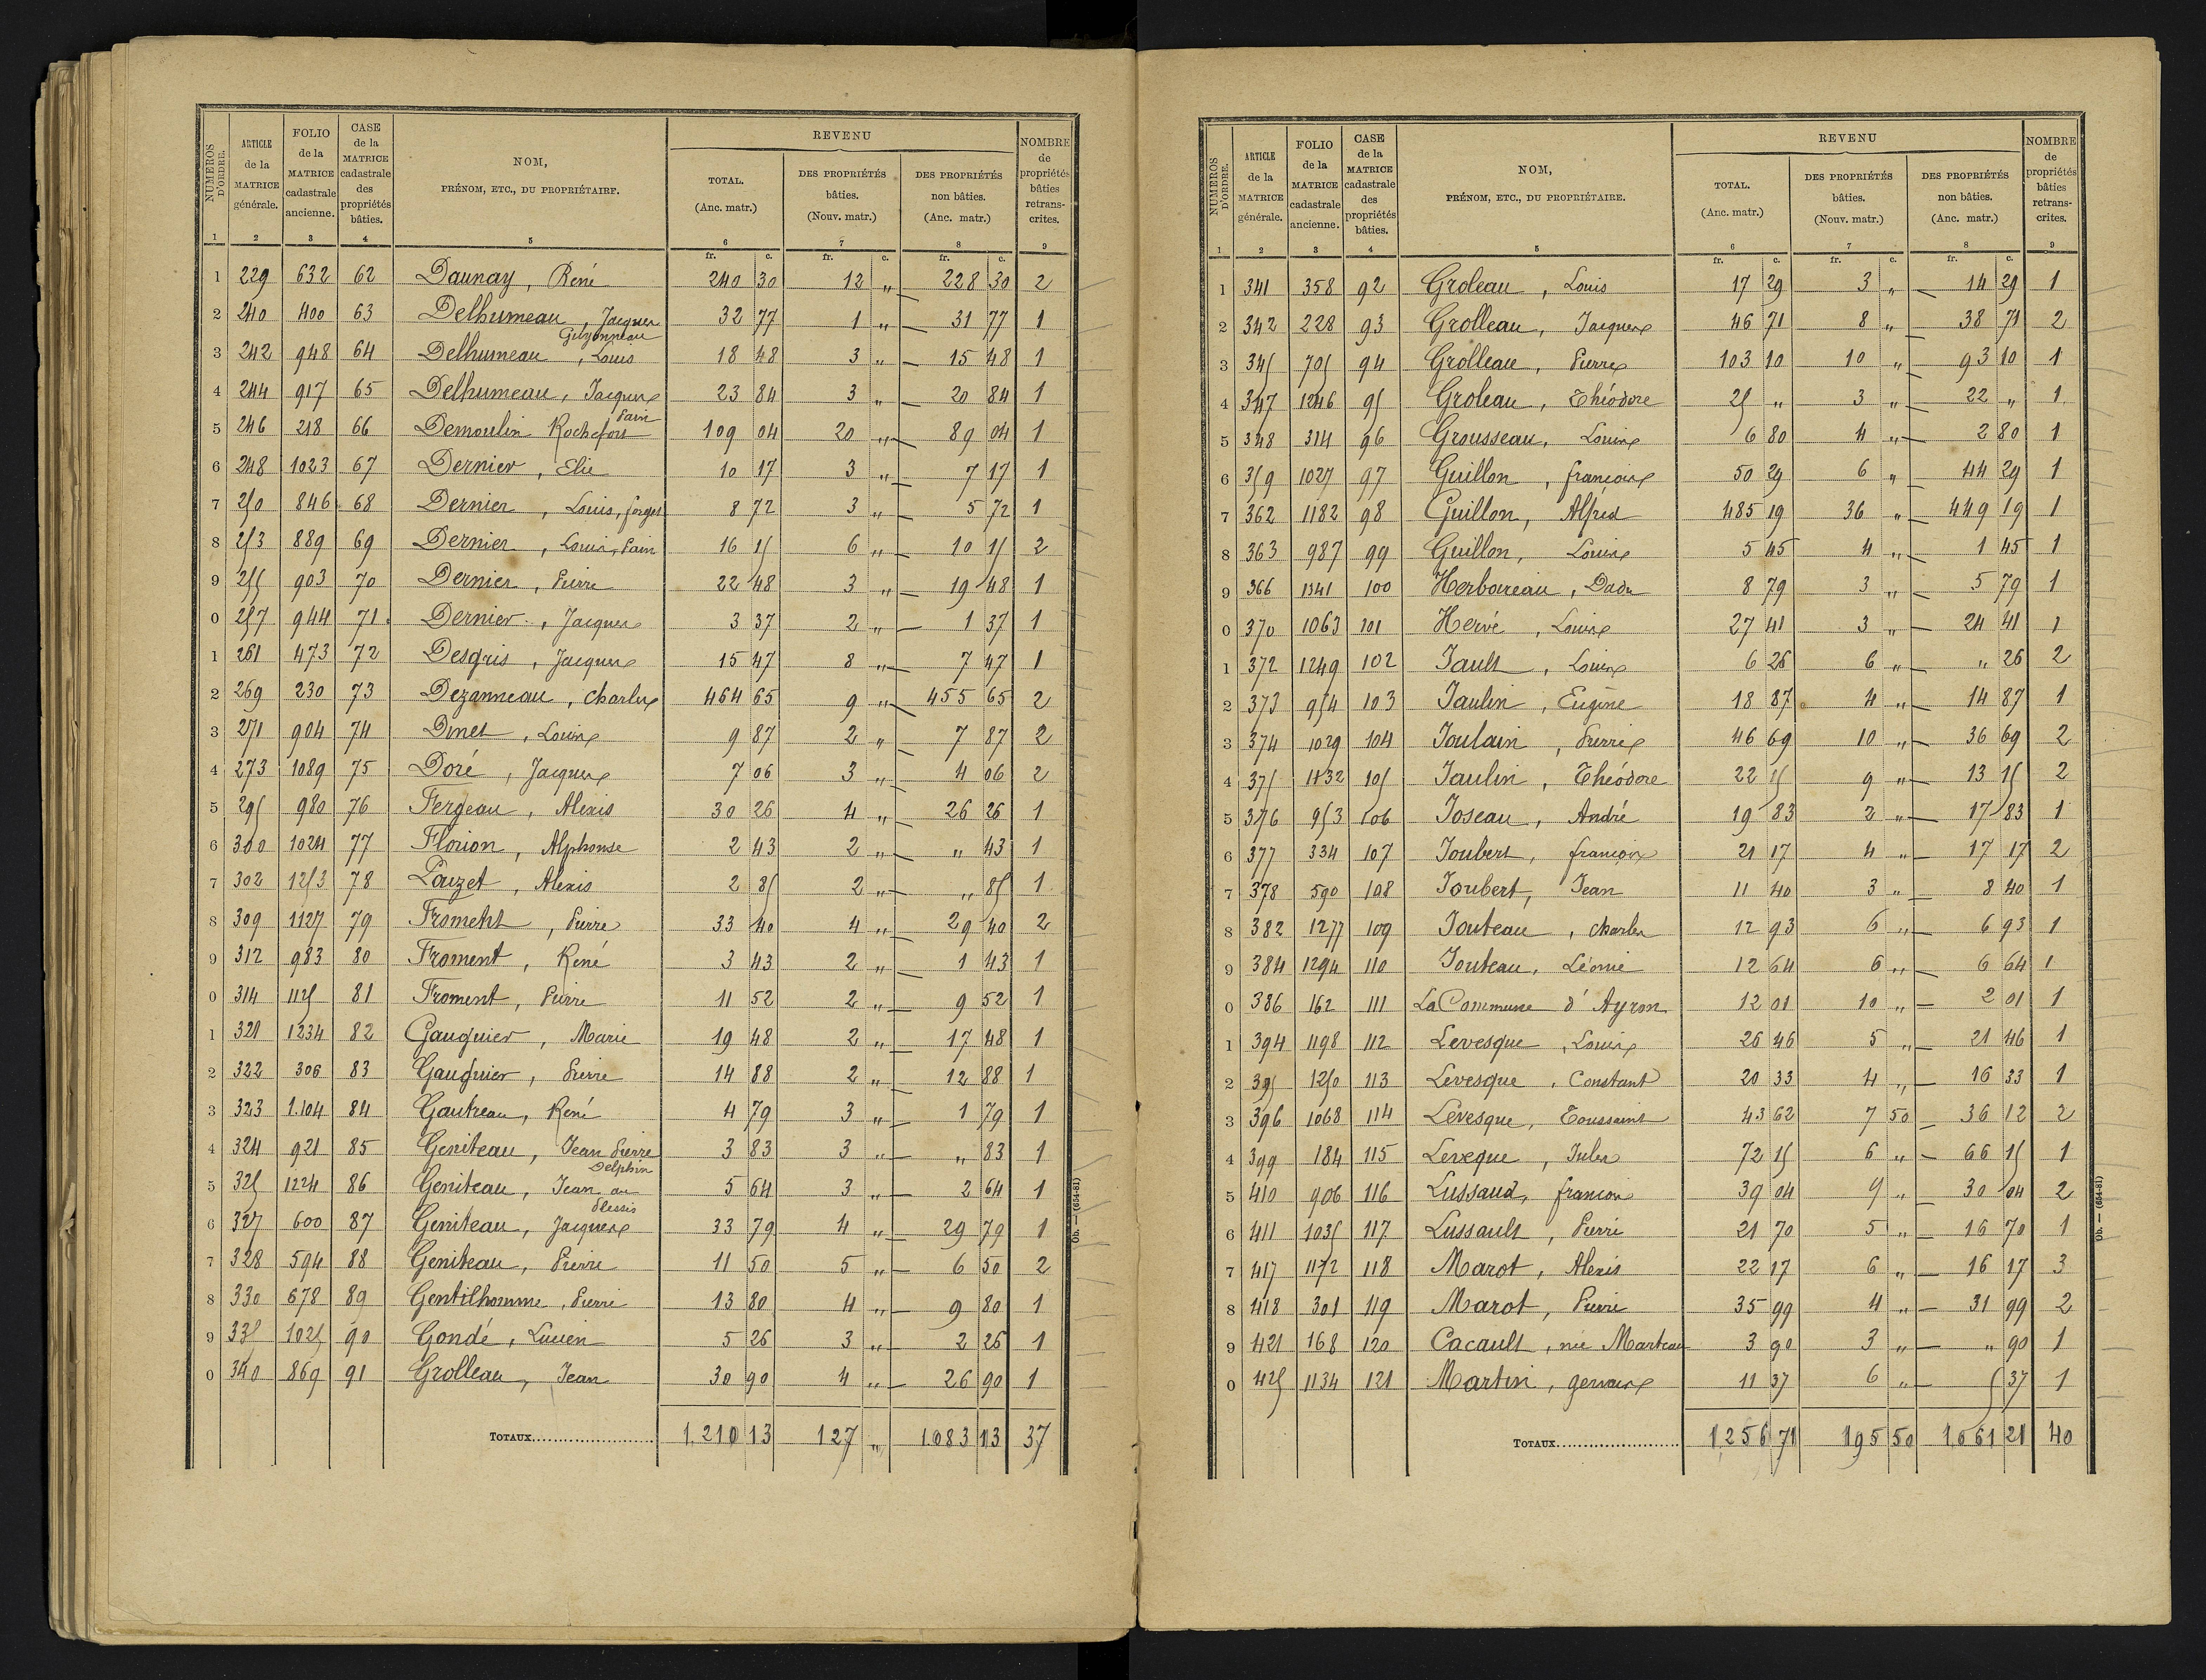 NUMÉROS D'ORDRE. | ARTICLE de la MATRICE générale. | FOLIO de la MATRICE cadastrale ancienne. | CASE de la MATRICE cadastrale des propriétés bâties. | NOM, PRÉNOM, ETC., DU PROPRIÉTAIRE. | REVENU TOTAL. (Anc. matr.) | DES PROPRIÉTÉS bâties. (Nouv. matr.) | DES PROPRIÉTÉS non bâties. (Anc. matr.) | NOMBRE de propriétés bâties retranscrites.
1 | 2 | 3 | 4 | 5 | 6 | 7 | 8 | 9
fr. c. | fr. c. | fr. c.
1 229 632 62 Daunay, René 240 30 12 " 228 30 2
2 240 400 63 Delhumeau, Jacques 32 77 1 " — 31 77 1
Guyonneau
3 242 948 64 Delhumeau, Louis 18 48 3 " — 15 48 1
4 244 917 65 Delhumeau, Jacques 23 84 3 " — 20 84 1
Pain
5 246 218 66 Demoulin Rochefort 109 04 20 " — 89 04 1
6 248 1023 67 Dernier, Elie 10 17 3 " — 7 17 1
7 250 846 68 Dernier, Louis, forges 8 72 3 " — 5 72 1
8 253 889 69 Dernier, Louis, Pain 16 15 6 " — 10 15 2
9 255 903 70 Dernier, Pierre 22 48 3 " — 19 48 1
0 257 944 71 Dernier, Jacques 3 37 2 " — 1 37 1
1 261 473 72 Desgris, Jacques 15 47 8 " — 7 47 1
2 269 230 73 Dezanneau, Charles 464 65 9 " — 455 65 2
3 271 904 74 Dinet, Louis 9 87 2 " — 7 87 2
4 273 1089 75 Doré, Jacques 7 06 3 " — 4 06 2
5 295 980 76 Fergeau, Alexis 30 26 4 " — 26 26 1
6 300 1024 77 Florion, Alphonse 2 43 2 " — " 43 1
7 302 1253 78 Pouzet, Alexis 2 85 2 " — " 85 1
8 309 1127 79 Froment, Pierre 33 40 4 " — 29 40 2
9 312 983 80 Froment, René 3 43 2 " — 1 43 1
0 314 1125 81 Froment, Pierre 11 52 2 " — 9 52 1
1 321 1234 82 Gauguier, Marie 19 48 2 " — 17 48 1
2 322 306 83 Gauguier, Pierre 14 88 2 " — 12 88 1
3 323 1.104 84 Gautreau, René 4 79 3 " — 1 79 1
4 324 921 85 Geniteau, Jean Pierre 3 83 3 " — " 83 1
Delphin
5 325 1224 86 Geniteau, Jean au 5 64 3 " — 2 64 1
Plessis
6 327 600 87 Geniteau, Jacques 33 79 4 " — 29 79 1
7 328 594 88 Geniteau, Pierre 11 50 5 " — 6 50 2
8 330 678 89 Gentilhomme, Pierre 13 80 4 " — 9 80 1
9 335 1025 90 Gondé, Lucien 5 26 3 " — 2 26 1
0 340 869 91 Grolleau, Jean 30 90 4 " — 26 90 1
TOTAUX 1.210 13 127 " 1083 13 37
Ob. — (654-81)
NUMÉROS D'ORDRE. | ARTICLE de la MATRICE générale. | FOLIO de la MATRICE cadastrale ancienne. | CASE de la MATRICE cadastrale des propriétés bâties. | NOM, PRÉNOM, ETC., DU PROPRIÉTAIRE. | REVENU TOTAL. (Anc. matr.) | DES PROPRIÉTÉS bâties. (Nouv. matr.) | DES PROPRIÉTÉS non bâties. (Anc. matr.) | NOMBRE de propriétés bâties retranscrites.
1 | 2 | 3 | 4 | 5 | 6 | 7 | 8 | 9
fr. c. | fr. c. | fr. c.
1 341 358 92 Groleau, Louis 17 29 3 " — 14 29 1
2 342 228 93 Grolleau, Jacques 46 71 8 " — 38 71 2
3 345 705 94 Grolleau, Pierre 103 10 10 " — 93 10 1
4 347 1246 95 Groleau, Théodore 25 " 3 " — 22 " 1
5 348 314 96 Grousseau, Louis 6 80 4 " — 2 80 1
6 359 1027 97 Guillon, françois 50 29 6 " — 44 29 1
7 362 1182 98 Guillon, Alfred 485 19 36 " — 449 19 1
8 363 987 99 Guillon, Louis 5 45 4 " — 1 45 1
9 366 1341 100 Herbaireau, 8 79 3 " — 5 79 1
0 370 1063 101 Hervé, Louis 27 41 3 " — 24 41 1
1 372 1249 102 Jault, Louis 6 26 6 " — " 26 2
2 373 954 103 Jaulin, Eugène 18 87 4 " — 14 87 1
3 374 1029 104 Joulain, Pierre 46 69 10 " — 36 69 2
4 375 1232 105 Jaulin, Théodore 22 15 9 " — 13 15 2
5 376 953 106 Joseau, André 19 83 2 " — 17 83 1
6 377 334 107 Joubert, françois 21 17 4 " — 17 17 2
7 378 590 108 Joubert, Jean 11 40 3 " — 8 40 1
8 382 1277 109 Jouteau, Charles 12 93 6 " — 6 93 1
9 384 1294 110 Jouteau, Léonie 12 64 6 " — 6 64 1
0 386 162 111 La Commune d'Ayron 12 01 10 " — 2 01 1
1 394 1198 112 Levesque, Louis 26 46 5 " — 21 46 1
2 395 1250 113 Levesque, Constant 20 33 4 " — 16 33 1
3 396 1068 114 Levesque, Toussaint 43 62 7 50 — 36 12 2
4 399 184 115 Leveque, Jules 72 15 6 " — 66 15 1
5 410 906 116 Lussaud, françois 39 04 9 " — 30 04 2
6 411 1035 117 Lussault, Pierre 21 70 5 " — 16 70 1
7 417 1172 118 Marot, Alexis 22 17 6 " — 16 17 3
8 418 301 119 Marot, Pierre 35 99 4 " — 31 99 2
9 421 168 120 Cacault, née Marteau 3 90 3 " — " 90 1
0 425 1134 121 Martin, gervais 11 37 6 " — 5 37 1
TOTAUX 1256 71 195 50 1.061 21 40
Ob. — (654-81)